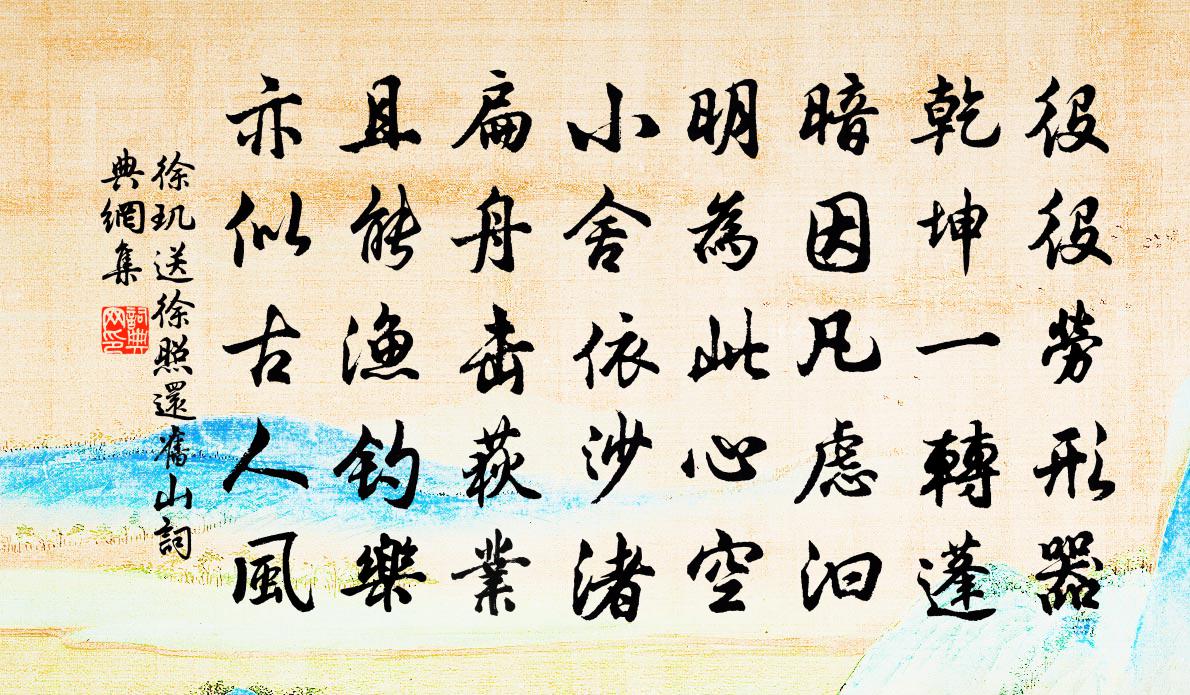 役役勞形器
乾坤一轉蓬
暗因凡慮汩
明為此心空
小舍依沙渚
扁舟击荻業
且能漁釣樂
亦似古人風
徐玑送徐照還舊山詞
典網集
詞典
网印